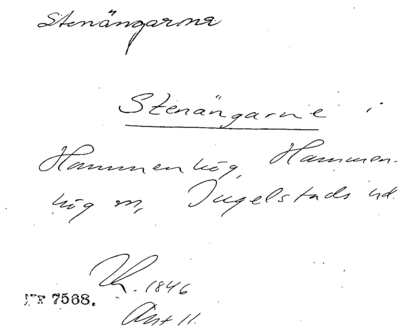 Stenängarne
Stenängarne i
Hammenhög, Hammen-
hög sn, Ingelstads hd.
1846
7568.
Akt 11.